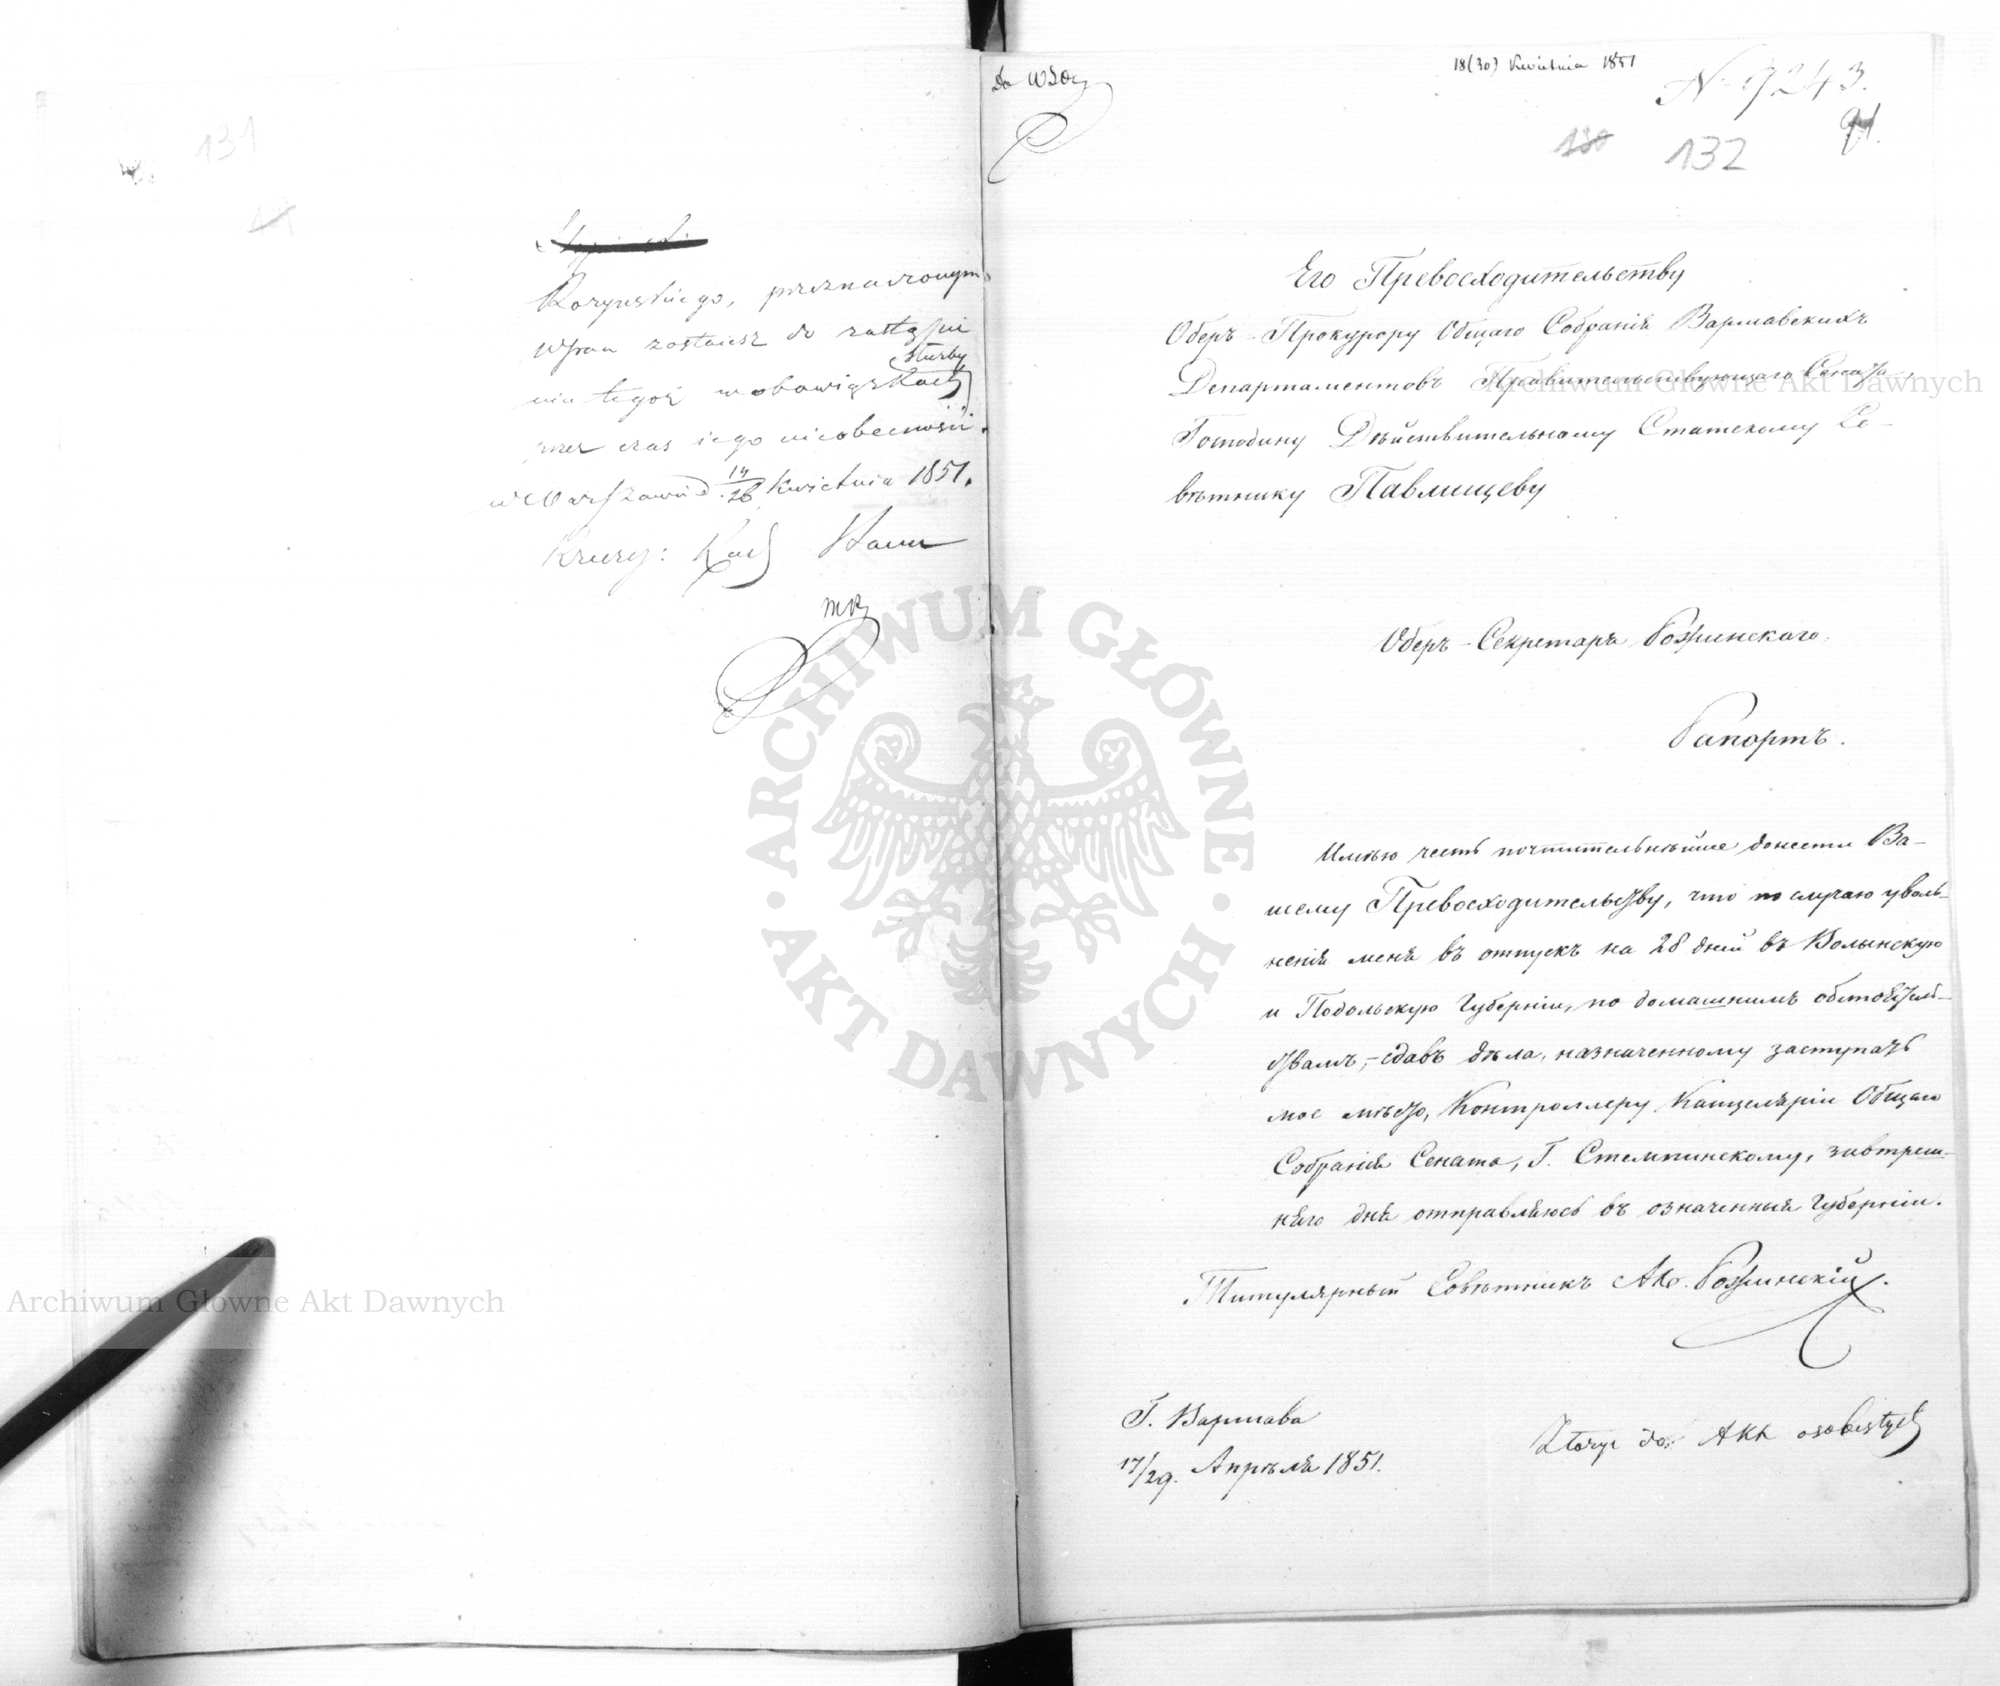 131
Rozyńskiego, przeznaczonym
WPan zostaiesz do zastąpie
służby
nia tegoż w obowiązkach
przez czas iego nieobecności.
w Warszawie d. 14/26 Kwietnia 1851.
Rzeczy: Radz Stanu
18(30) Kwietnia 1851
N. 7243.
130 132
Его Превосходительству
Оберъ-Прокурору Общаго Собранія Варшавскихъ
Департаментовъ Правительствующаго Сената,
Господину Дѣйствительному Статскому Со-
вѣтнику Павлищеву
Оберъ-Секретаря Рожинскаго,
Рапортъ.
Имѣю честь почтительнѣйше донести Ва-
шему Превосходительству, что по случаю уволь-
ненія меня въ отпускъ на 28 дней въ Волынскую
и Подольскую Губерніи, по домашнимъ обстоятель-
ствамъ,-сдавъ дѣла, назначенному заступать
мое мѣсто, Контроллеру Канцеляріи Общаго
Собранія Сената, Г. Стемпинскому, завтреш-
няго дня отправляюсь въ означенныя Губерніи.
Титулярный Совѣтникъ Ал. Рожинскій.
Г. Варшава
17/29. Апрѣля 1851.
Złożyć do Akt osobistych
Archiwum Główne Akt Dawnych
Archiwum Główne Akt Dawnych
ARCHIWUM GŁÓWNE AKT DAWNYCH